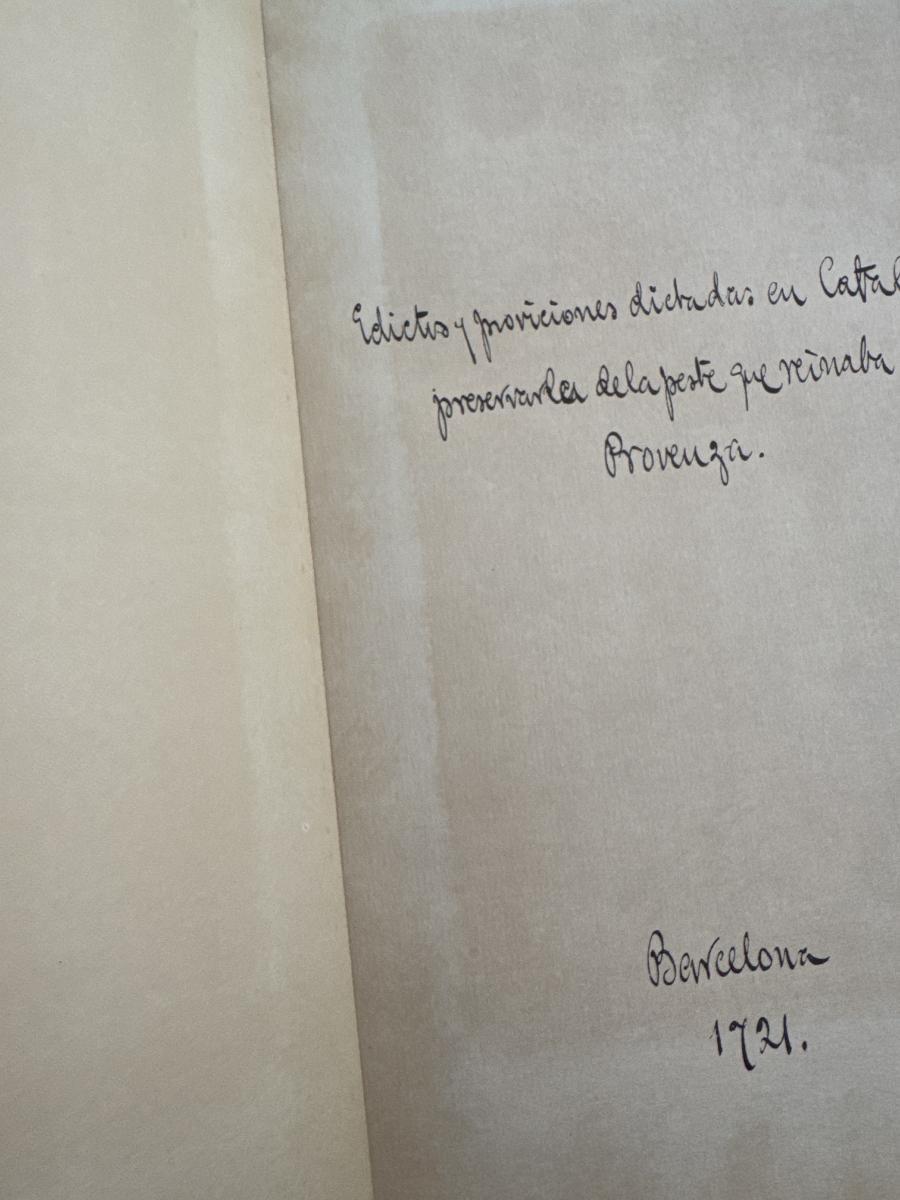 Edictos y proviciones dictadas en Catal
preservarla de la peste que reinaba
Provenza.
Barcelona
1721.